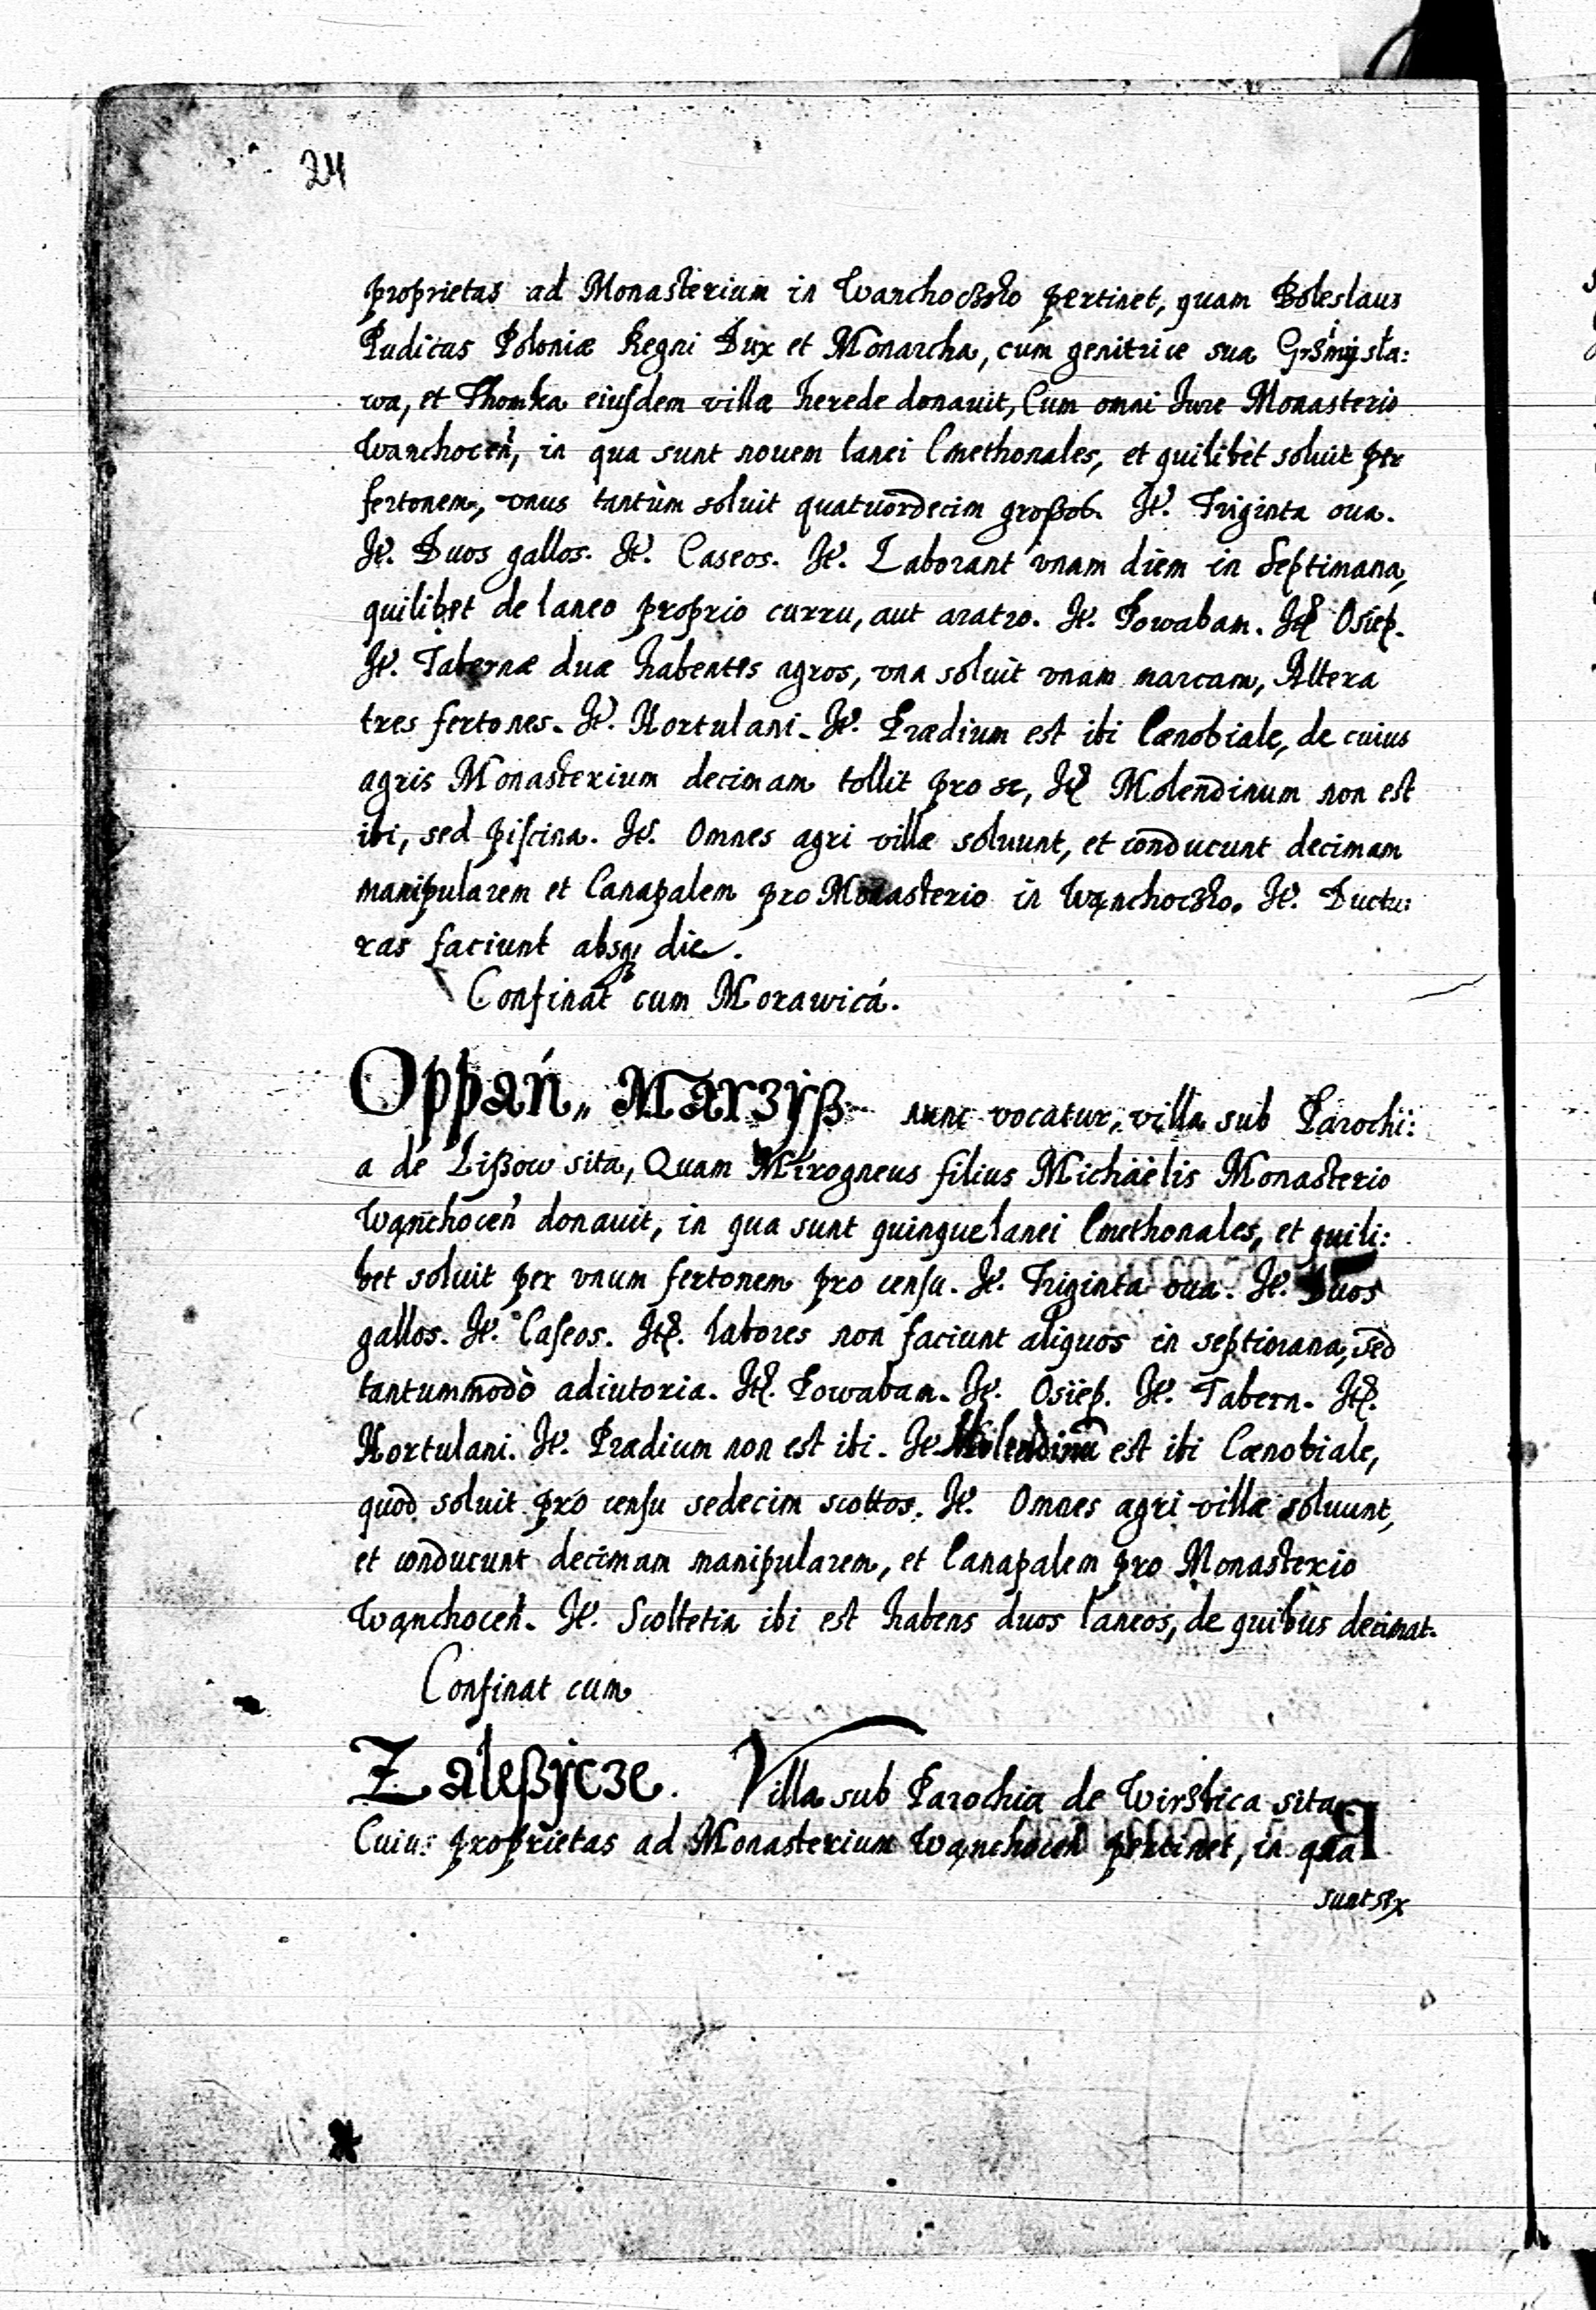 24
proprietas ad Monasterium in Wanchoczko pertinet, quam Boleslaus
Pudicus Poloniæ Regni Dux et Monarcha, cum genitrice sua Grzmysła:
wa, et Thomka eiusdem villæ herede donauit, Cum omni Iure Monasterio
Wanchoceń, in qua sunt nouem lanei Cmethonales, et quilibèt soluit per
fertonem, vnus tantùm soluit quatuordecim großos. It. Triginta oua.
It. Duos gallos. It. Caseos. It. Laborant vnam diem in Septimana,
quilibet de laneo proprio curru, aut aratro. It. Powabam. Itē Osiep.
It. Tabernæ duæ habentes agros, vna soluit vnam marcam, Altera
tres fertones. It. Hortulani. It. Prædium est ibi Cænobiale, de cuius
agris Monasterium decimam tollit pro se, Itē Molendinum non est
ibi, sed piscina. It. Omnes agri villæ soluunt, et conducunt decimam
manipularem et Canapalem pro Monasterio in Wąnchoczko. It. Ductu:
ras faciunt absq; die.
Confinat cum Morawicá.
Oppań, Marzyß nunc vocatur, villa sub Parochi:
a de Lißow sita, Quam Mirogneus filius Michäelis Monasterio
Wąnchoceń donauit, in qua sunt quinque lanei Cmethonales, et quili:
bet soluit per vnum fertonem pro censu. It. Triginta oua. It. Duos
gallos. It. Caseos. Itē. labores non faciunt aliquos in septimana, sed
tantummodò adiutoria. Itē. Powabam. It. Osiep. It. Tabern. Itē.
Hortulani. It. Prædium non est ibi. It. Molendinū est ibi Cænobiale,
quod soluit pro censu sedecim scottos. It. Omnes agri villæ soluunt,
et conducunt decimam manipularem, et Canapalem pro Monasterio
Wąnchoceń. It. Scoltetia ibi est habens duos laneos, de quibus decimat.
Confinat cum
Zaleßycze. Villa sub Parochia de Wirzbica sita
Cuius proprietas ad Monasterium Wąnchoceń pertinet, in qua
sunt sex